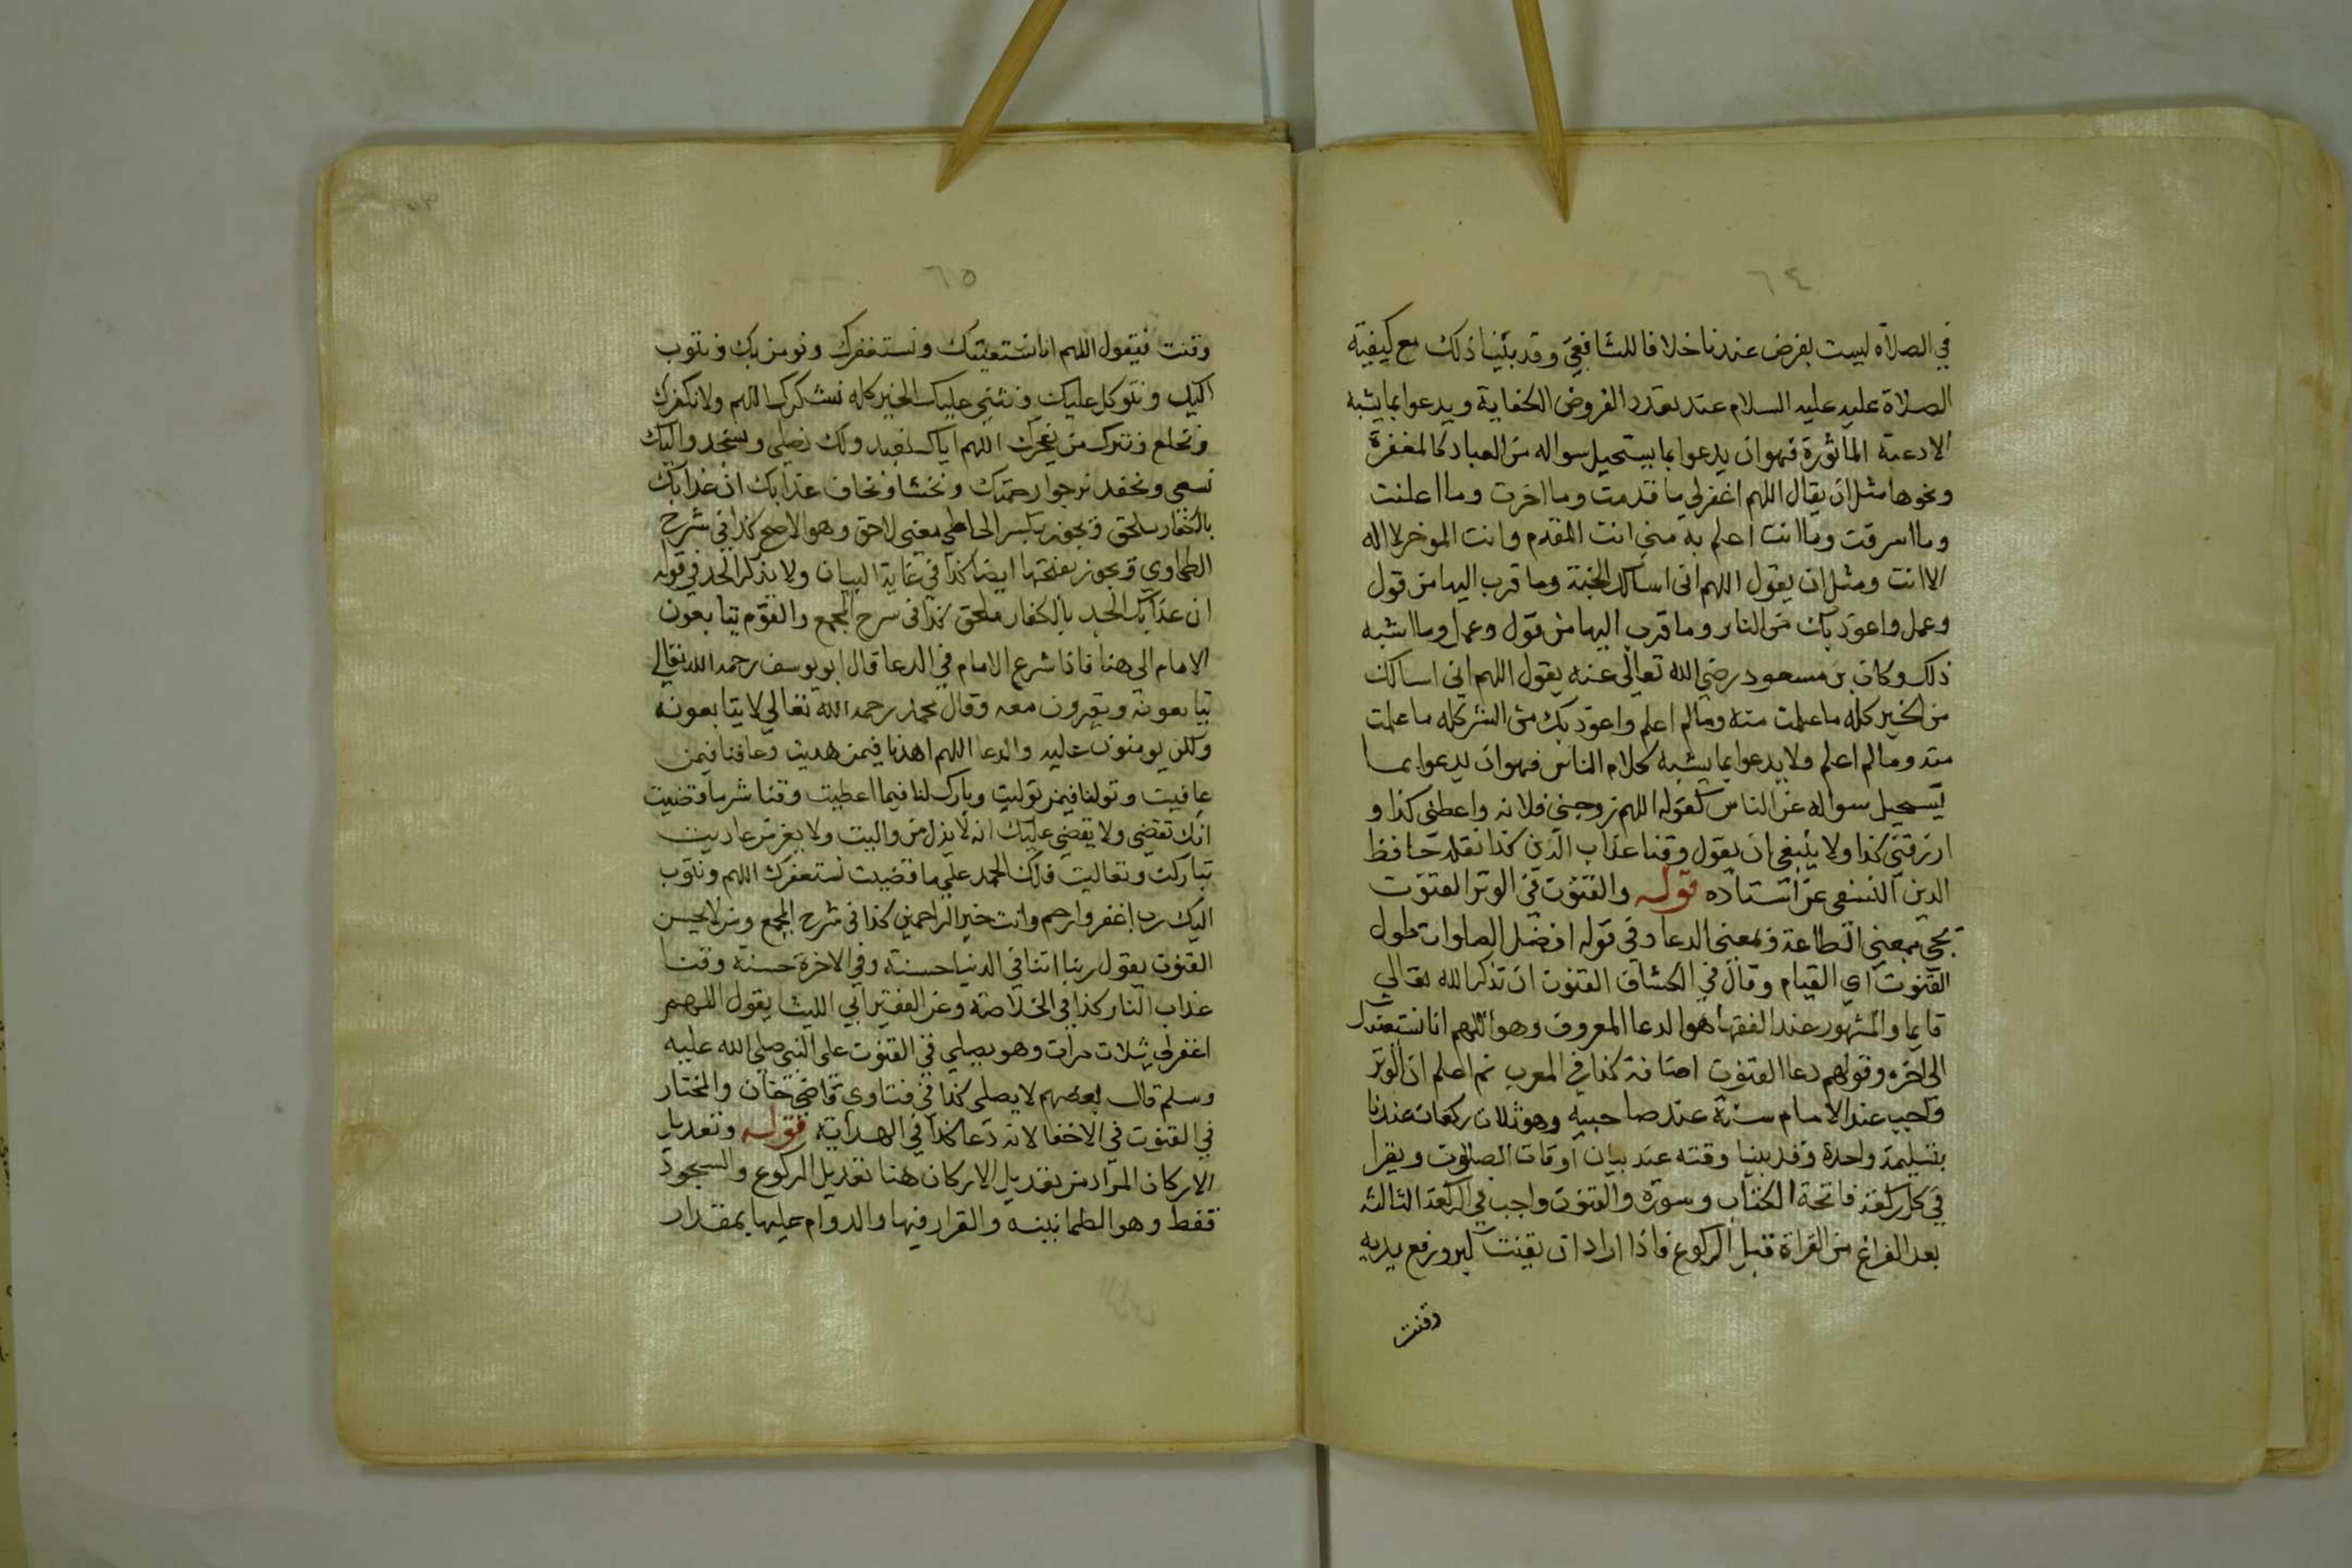 ٦٤
في الصلاة ليست بفرض عندنا خلافا للشافعي وقد بينا ذلك مع كيفية
الصلاة عليه عليه السلام عند تعدد الفروض الكفاية ويدعوا بما يشبه
الادعية الماثورة فهو ان يدعوا بما يستحيل سواله من العباد كالمغفرة
ونحوها مثل ان يقال اللهم اغفرلي ما قدمت وما اخرت وما اعلنت
وما اسرفت وما انت اعلم به مني انت المقدم وانت الموخر لا اله
الا انت ومثل ان يقول اللهم انى اسالك الجنة وما قرب اليها من قول
وعمل واعوذ بك من النار وما قرب اليها من قول وعمل وما اشبه
ذلك وكان بن مسعود رضي الله تعالى عنه يقول اللهم اني اسالك
من الخير كله ما علمت منه وما لم اعلم واعوذ بك من الشر كله ما علمت
منه وما لم اعلم ولا يدعوا بما يشبه كلام الناس فهو ان يدعوا بما
يستحيل سواله عن الناس كقوله اللهم زوجني فلانه واعطني كذا و
ارزقني كذا ولا ينبغي ان يقول وقنا عذاب الدين كذا نقله حافظ
الدين النسفي عن استاده قوله والقنوت في الوتر القنوت
يجي بمعني الطاعة وبمعني الدعا وفي قوله افضل الصلوات طول
القنوت اي القيام وقال في الكشاف القنوت ان تذكر الله تعالي
قايما والمشهور عند الفقها هو الدعا المعروف وهو اللهم انا نستعينك
الى آخره وقولهم دعا القنوت اضافة كذا في المغرب ثم اعلم ان الوتر
واجب عند الامام سنة عند صاحبيه وهو ثلاث ركعات عندنا
بتسليمة واحدة وقد بينا وقته عند بيان اوقات الصلوت ويقرا
في كل ركعة فاتحة الكتاب وسورة والقنوت واجب في الركعة الثالثة
بعد الفراغ من القراة قبل الركوع فاذا اراد ان يقنت كبر ورفع يديه
وقنت
٦٥
وقنت فيقول اللهم انا نستعينك ونستغفرك ونومن بك ونتوب
اليك ونتوكل عليك ونثني عليك الخير كله نشكرك اللهم ولا نكفرك
ونخلع ونترك من يفجرك اللهم اياك نعبد ولك نصلي ونسجد واليك
نسعى ونحفد نرجوا رحمتك ونخشا ونخاف عذابك ان عذابك
بالكفار ملحق ويجوز بكسر الحا اي بمعنى لاحق وهو الاصح كذا في شرح
الطحاوي ويجوز بفتحها ايضا كذا في غاية البيان ولا يذكر الجد في قوله
ان عذابك الجد بالكفار ملحق كذا في شرح المجمع والقوم يتابعون
الامام الى هنا فاذا شرع الامام في الدعا قال ابو يوسف رحمه الله تعالي
يتابعونه ويقرون معه وقال محمد رحمه الله تعالي لا يتابعونه
ولكن يومنون عليه والدعا اللهم اهدنا فيمن هديت وعافنا فيمن
عافيت وتولنا فيمن توليت وبارك لنا فيما اعطيت وقنا شر ما قضيت
انك تقضي ولا يقضي عليك انه لا يذل من واليت ولا يعز من عاديت
تباركت وتعاليت فلك الحمد على ما قضيت نستغفرك اللهم ونتوب
اليك رب اغفر وارحم وانت خير الراحمين كذا في شرح المجمع ومن لا يحسن
القنوت يقول ربنا اتنا في الدنيا حسنة وفي الاخرة حسنة وقنا
عذاب النار كذا في الخلاصة وعن الفقير ابي الليث يقول اللهم
اغفرلي ثلاث مرات وهو يصلي في القنوت على النبي صلى الله عليه
وسلم قال بعضهم لا يصلي كذا في فتاوي قاضي خان والمختار
في القنوت في الاخفا لانه دعا كذا في الهداية قوله وتعديل
الاركان المراد من تعديل الاركان هنا تعديل الركوع والسجود
فقط وهو الطمانينه والقرار فيها والدوام عليها بمقدار